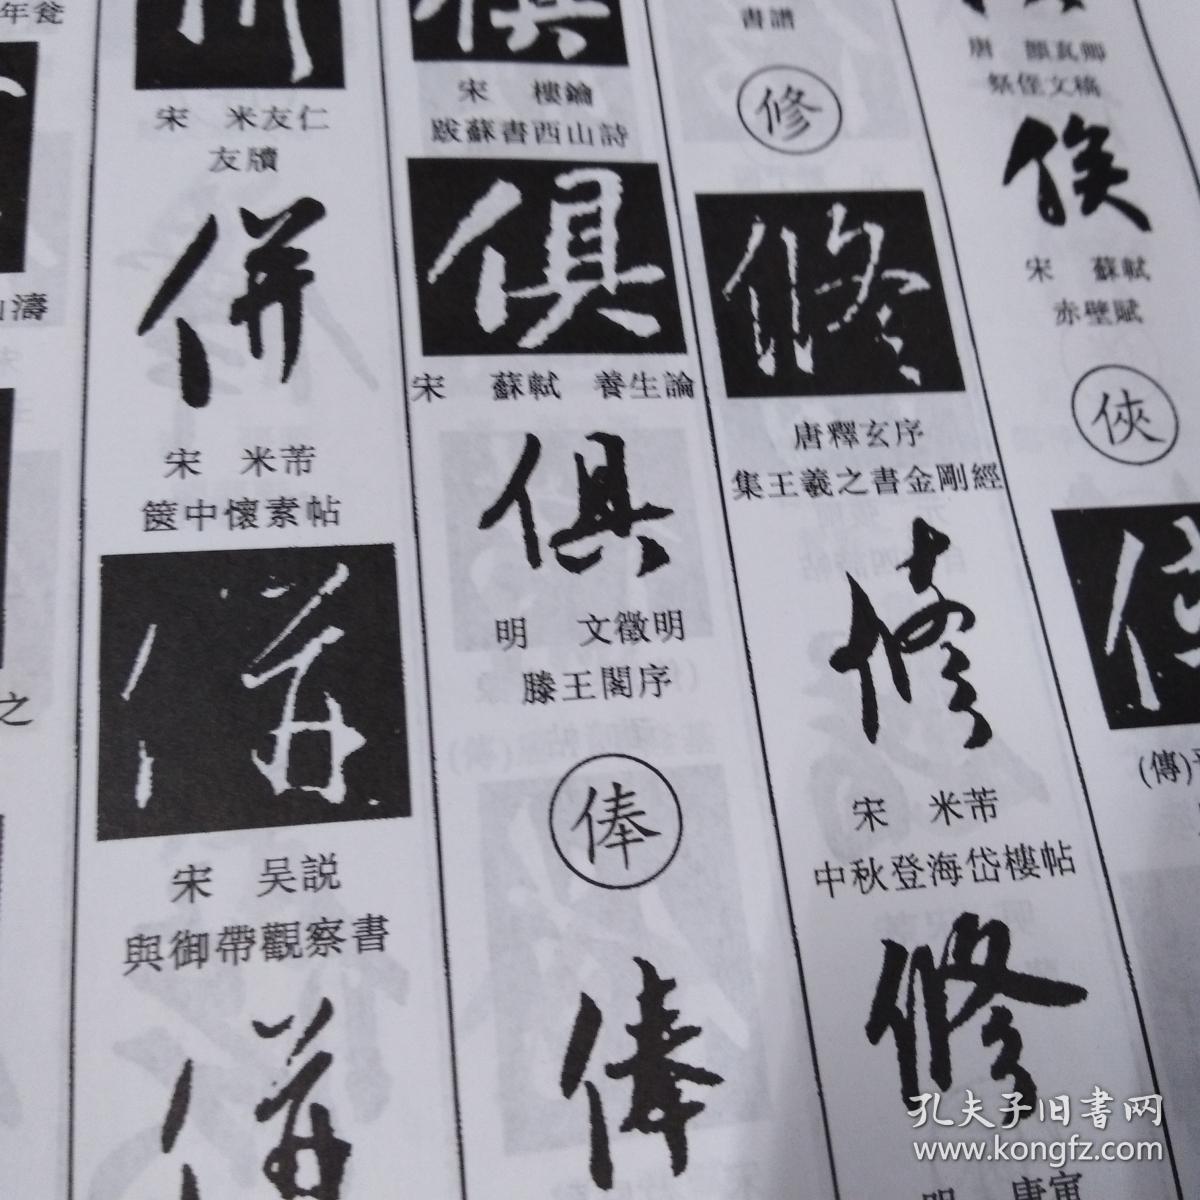 年瓮
濤
之
宋 米友仁
友牘
併
宋 米芾
篋中懷素帖
併
宋 吴説
與御帶觀察書
併
俱
宋 樓鑰
跋蘇書西山詩
俱
宋 蘇軾 養生論
俱
明 文徵明
滕王閣序
俸
俸
書譜
修
修
唐釋玄序
集王羲之書金剛經
修
宋 米芾
中秋登海岱樓帖
修
明 唐寅
唐 顏真卿
祭侄文稿
俟
宋 蘇軾
赤壁賦
俠
(傳)
孔夫子旧书网
www.kongfz.com